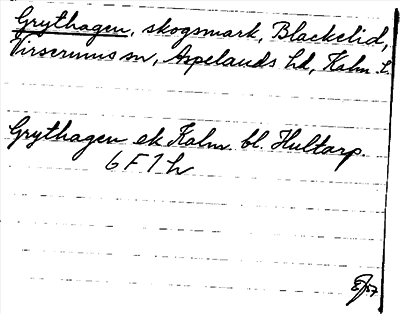 Grythagen, skogsmark, Blackelid,
Virserums sn, Aspelands hd, Kalm. l.
Grythagen ek Kalm. bl. Hultarp.
6 F 7 h